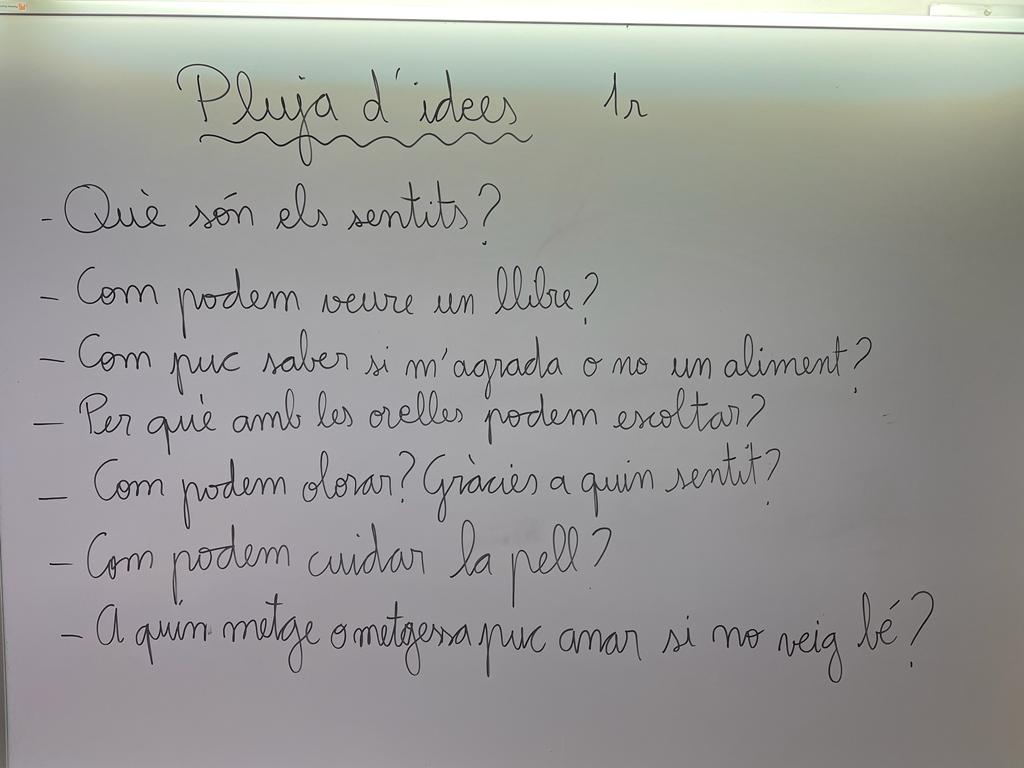 Pluja d'idees 1r
- Què són els sentits?
- Com podem veure un llibre?
- Com puc saber si m'agrada o no un aliment?
- Per què amb les orelles podem escoltar?
- Com podem olorar? Gràcies a quin sentit?
- Com podem cuidar la pell?
- A quin metge o metgessa puc anar si no veig bé?